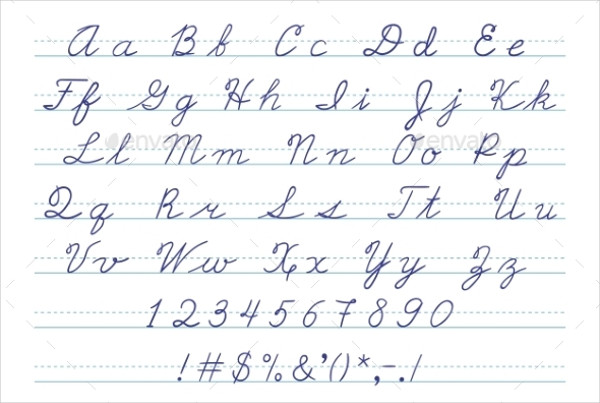 A a B b C c D d E e
F f G g H h I i J j K k
L l M m N n O o P p
Q q R r S s T t U u
V v W w X x Y y Z z
1 2 3 4 5 6 7 8 9 0
! # $ % & ' ( ) * , - . /
envato
envato